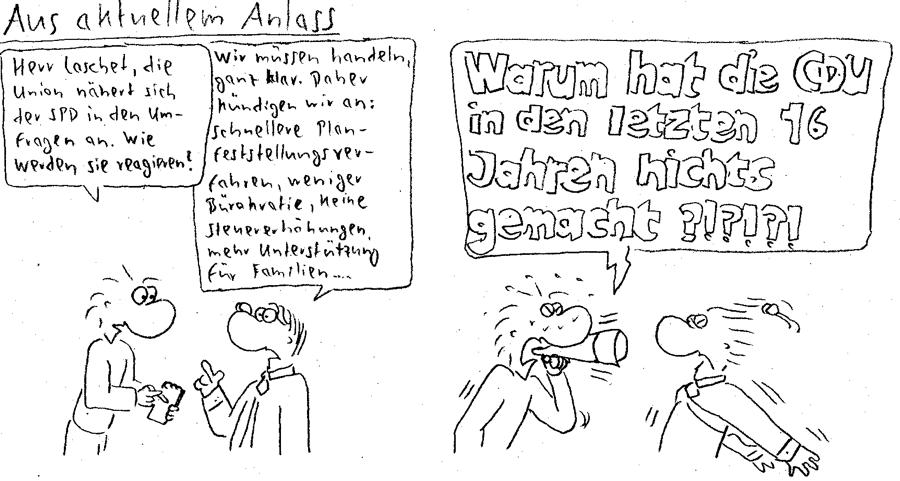 Aus aktuellem Anlass
Herr Laschet, die
Union nähert sich
der SPD in den Um-
fragen an. Wie
werden sie reagieren?
Wir müssen handeln,
ganz klar. Daher
kündigen wir an:
schnellere Plan-
feststellungsver-
fahren, weniger
Bürokratie, keine
Steuererhöhungen,
mehr Unterstützung
für Familien....
Warum hat die CDU
in den letzten 16
Jahren nichts
gemacht ?!?!?!